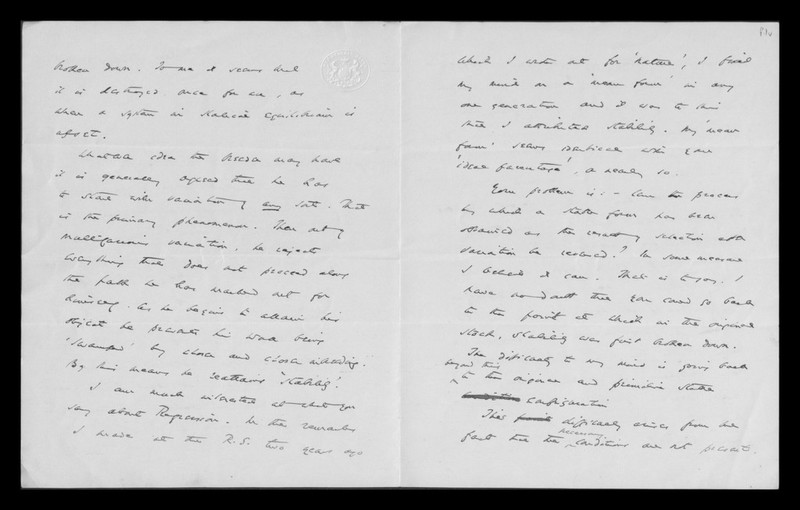 broken down. To me it seems that
it is destroyed, once for all, as
when a system in statical equilibrium is
upset.
Whatever idea the breeder may have
it is generally agreed that he has
to start with variation of any sort. That
is the primary phenomenon. Then out of
multifarious variation, he rejects
everything that does not proceed along
the path he has marked out for
himself. As he begins to attain his
object he prevents his work being
'swamped' by closer and closer inbreeding.
By this means he 'attains' 'stability'.
I am much interested at what you
say about Regression. In the remarks
I made at the R.S. two years ago
81v
which I wrote out for 'Nature', I fixed
my mind on a 'mean form' in any
one generation and it was to this
that I attributed stability. My 'mean
form' seems identical with your
'ideal parentage', or nearly so.
Your problem is :- Can the process
by which a stable form has been
obtained as the result of selection after
variation be reversed? In some measure
I believe it can. That is to say, I
have no doubt that you could go back
to the point at which in the original
stock, stability was first broken down.
The difficulty to my mind is going back
beyond this
to the original and primitive stable
configuration
This difficulty arises from the
necessary
fact that the conditions are not present.